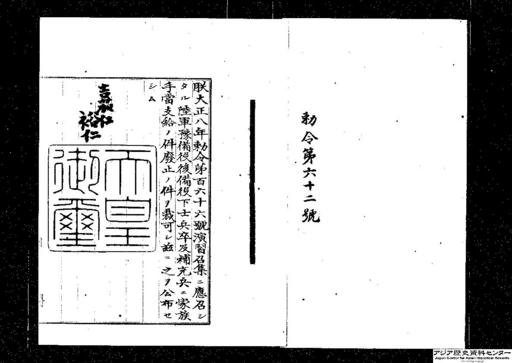 勅令第六十二號
朕大正八年勅令第百六十六號演習召集ニ應召シ
タル陸軍豫備役後備役下士兵卒及補充兵ニ家族
手當支給ノ件廢止ノ件ヲ裁可シ茲ニ之ヲ公布セ
シム
嘉仁
裕仁
天皇
御璽
アジア歴史資料センター
Japan Center for Asian Historical Records